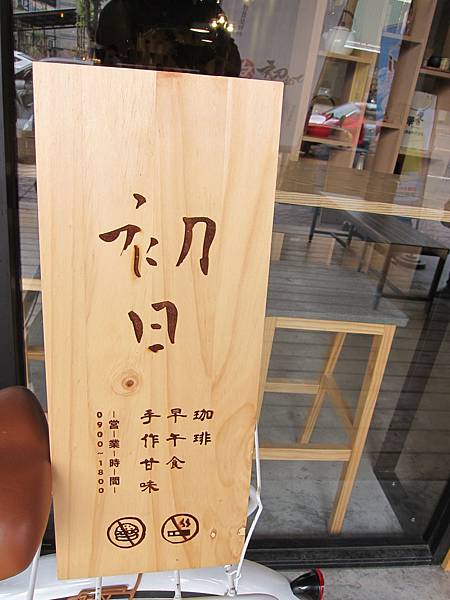 初
日
珈琲
早午食
手作甘味
－營－業－時－間－
0900~1800
初